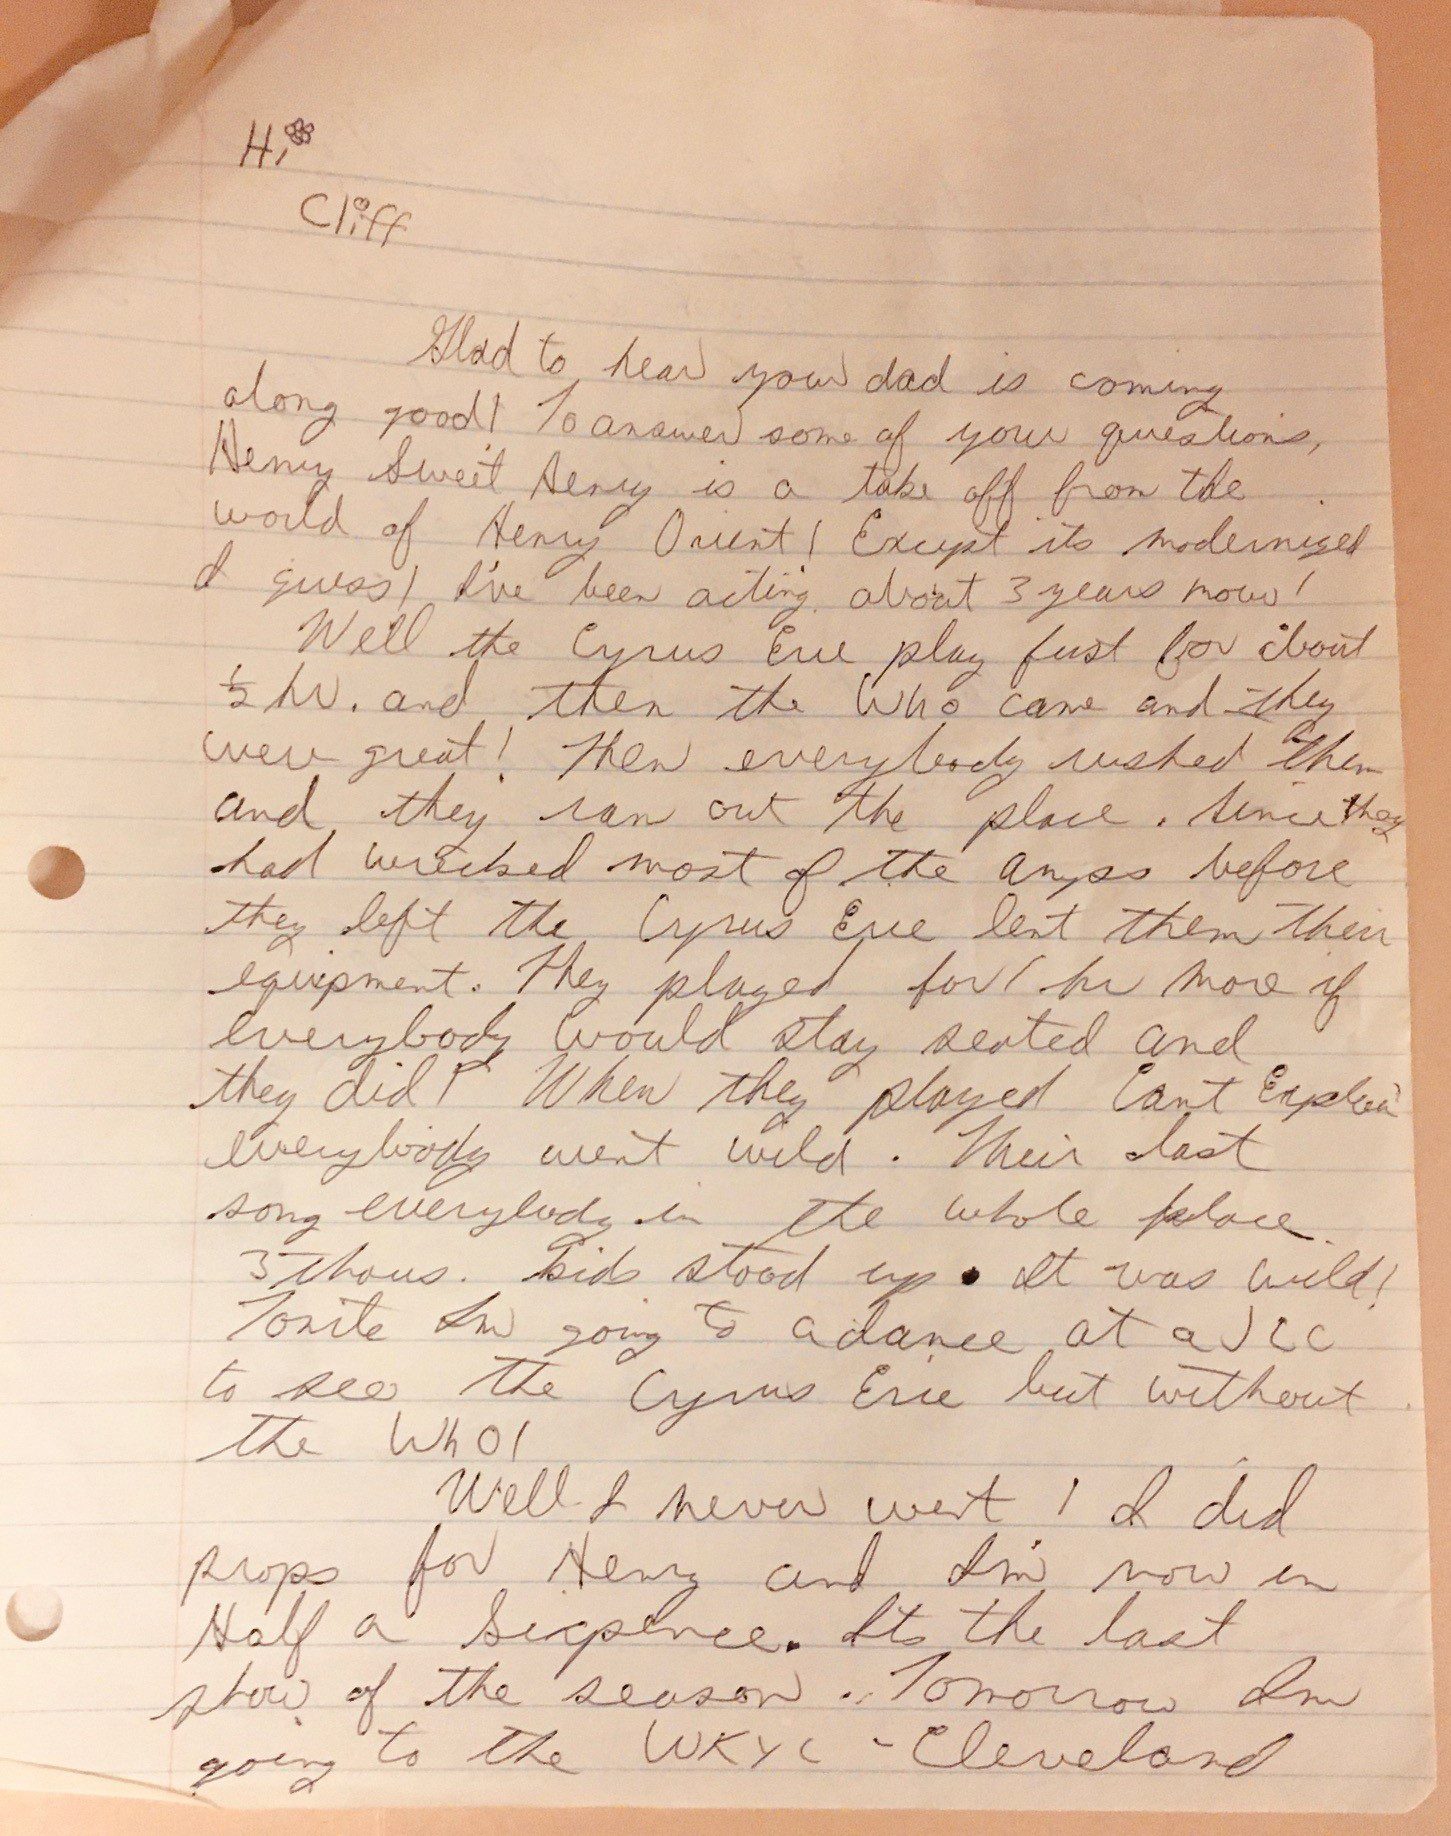 Hi
Cliff
Glad to hear your dad is coming
along good! To answer some of your questions,
Henry Sweet Henry is a take off from the
world of Henry Orient! Except its modernized
I guess! I've been acting about 3 years now!
Well the Cyrus Erie play first for about
½ hr. and then the Who came and they
were great! Then everybody rushed them
and they ran out the place. Since they
had wrecked most of the amps before
they left the Cyrus Erie lent them their
equipment. They played for 1 hr more if
everybody would stay seated and
they did! When they played Cant Explain
everybody went wild. Their last
song everybody in the whole place
3 thous. kids stood up. It was wild!
Tonite Im going to a dance at a JCC
to see the Cyrus Erie but without
the Who!
Well I never went! I did
props for Henry and I'm now in
Half a Sixpence. Its the last
show of the season. Tomorrow Im
going to the WKYC - Cleveland